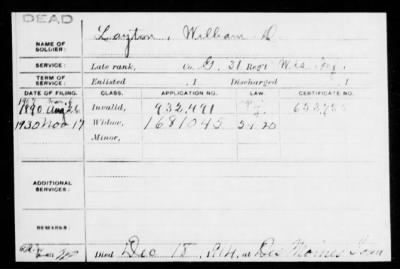 DEAD
NAME OF SOLDIER: Layton, William D.
SERVICE: Late rank, Co. G, 31 Reg't Wis. Inf.
TERM OF SERVICE: Enlisted , 1 Discharged , 1
DATE OF FILING. CLASS. APPLICATION NO. LAW. CERTIFICATE NO.
1890 Aug 26 Invalid, 932,491
1930 Nov 17 Widow, 1681045
Minor,
ADDITIONAL SERVICES:
REMARKS:
Died Dec 18, 1914, at Des Moines Iowa